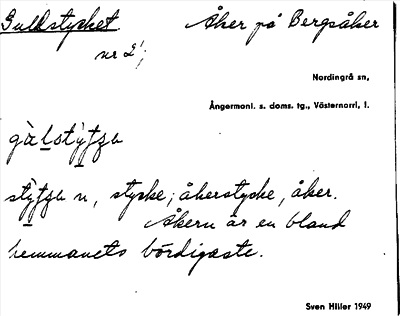 Gullstycket Åker på Bergsåker
nr 2¹;
Nordingrå sn,
Ångermanl. s. doms. tg., Västernorrl. l.
stycke; åkerstycke, åker.
Åkern är en bland
hemmanets bördigaste.
Sven Hiller 1949